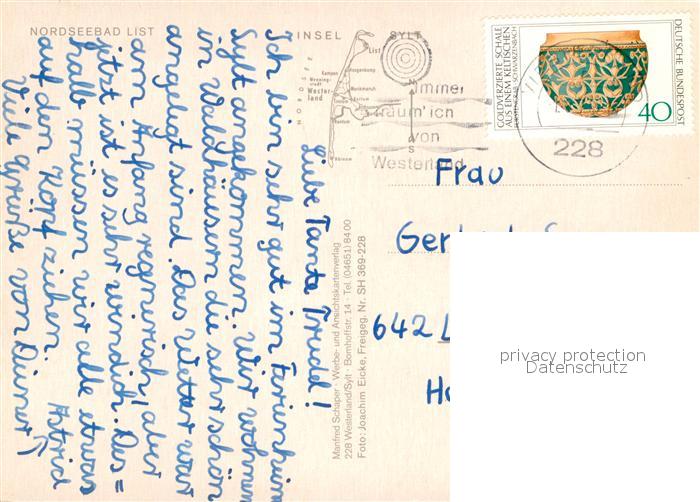 NORDSEEBAD LIST
INSEL SYLT
Liebe Tante Trudel!
Ich bin sehr gut im Ferienheim
Sylt angekommen. Wir wohnen
in Waldhäusern die sehr schön
angelegt sind. Das Wetter war
am Anfang regnerisch, aber
jetzt ist es sehr windich. Des=
halb müssen wir alle etwas
auf den Kopf ziehen.
Viele Grüße von Deiner Astrid
Manfred Schaper · Werbe- und Ansichtskartenverlag
228 Westerland/Sylt · Bomhoffstr. 14 · Tel. (04651) 84 00
Foto: Joachim Eicke, Freigeg. Nr. SH 369-228
List
Kampen
Westerland
NORDSEE
Immer
träum' ich
von
Westerland
228
GOLDVERZIERTE SCHALE
AUS EINEM KELTISCHEN
FÜRSTENGRAB / SCHWARZENBACH
DEUTSCHE BUNDESPOST
40
Frau
642
privacy protection
Datenschutz